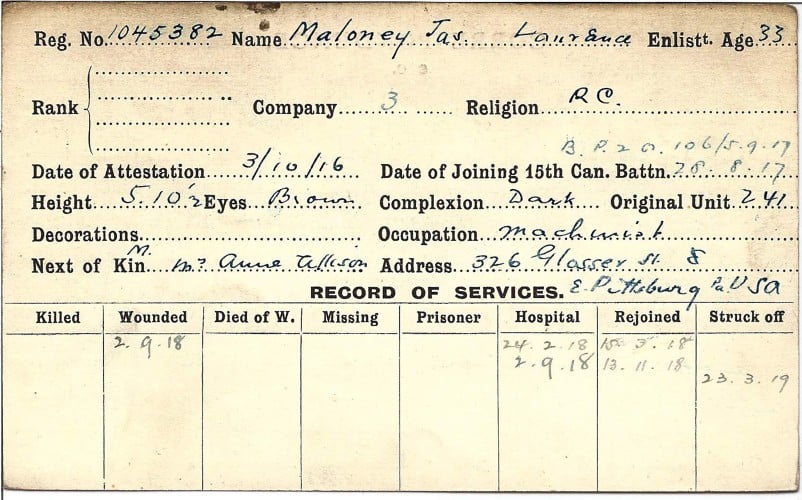 Reg. No. 1045382 Name Maloney Jas. Laurence Enlistt. Age 33
Rank Company 3 Religion R.C.
B. P. 2 O. 106/5.9.17
Date of Attestation 3/10/16 Date of Joining 15th Can. Battn. 28.8.17
Height 5.10½ Eyes Brown Complexion Dark Original Unit 241
Decorations Occupation machinist
M.
Next of Kin Mrs Anne Allison Address 326 Glasser St. 8
RECORD OF SERVICES. E. Pittsburg Pa USA
Killed Wounded Died of W. Missing Prisoner Hospital Rejoined Struck off
2.9.18 24.2.18 15.3.18
2.9.18 13.11.18
23.3.19